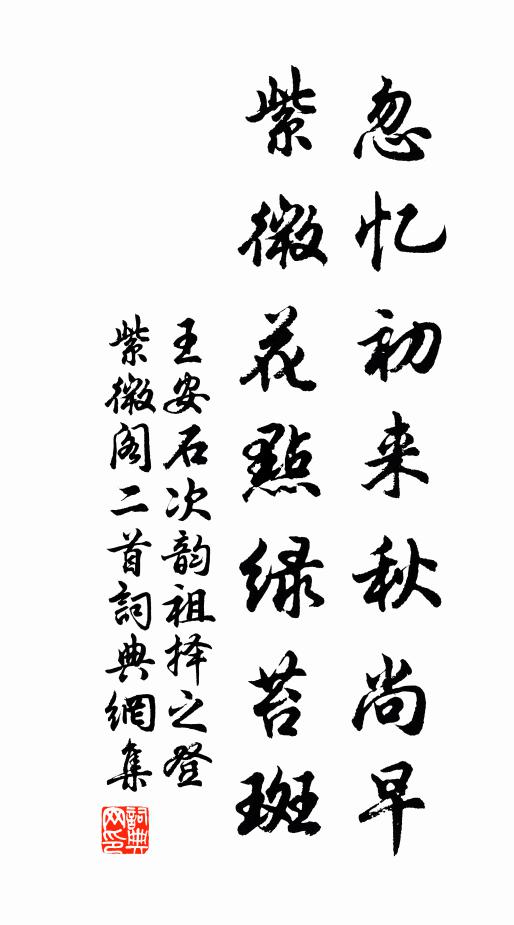 忽忆初来秋尚早
紫微花點绿苔斑
王安石次韵祖择之登
紫微阁二首詞典網集
詞典网印